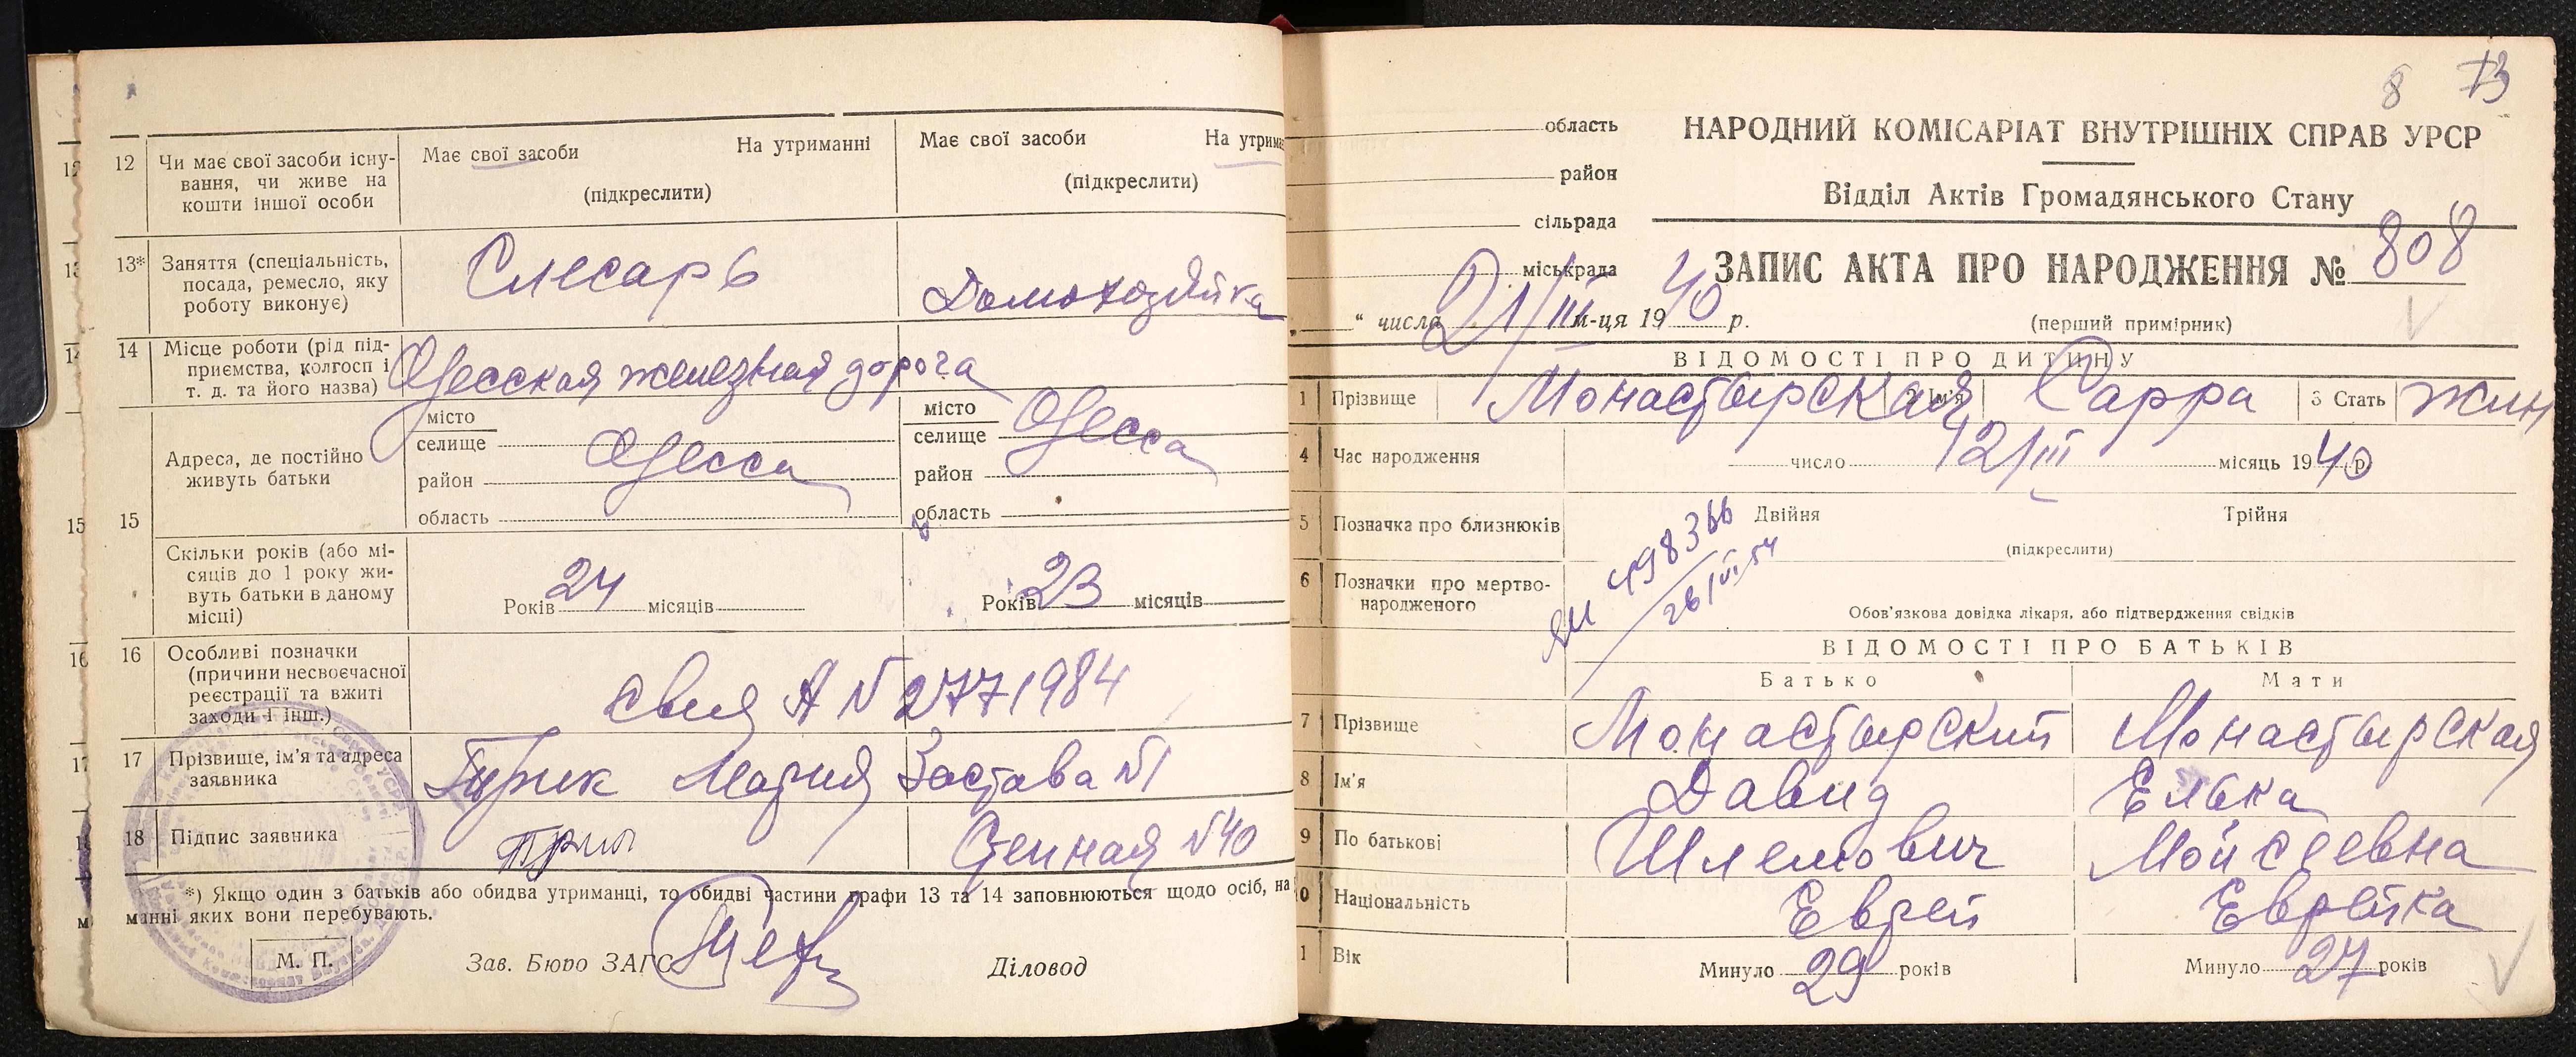 12 Чи має свої засоби існу-
вання, чи живе на
кошти іншої особи
Має свої засоби На утриманні
(підкреслити)
Має свої засоби На утрима
(підкреслити)
13* Заняття (спеціальність,
посада, ремесло, яку
роботу виконує)
Слесарь
Домохозяйка
14 Місце роботи (рід під-
приємства, колгосп і
т. д. та його назва)
Одесская железная дорога
15 Адреса, де постійно
живуть батьки
місто
селище
район Одесса
область
місто
селище Одесса
район
область
Скільки років (або мі-
сяців до 1 року жи-
вуть батьки в даному
місці)
Років 24 місяців
Років 23 місяців
16 Особливі позначки
(причини несвоєчасної
реєстрації та вжиті
заходи і інш.)
А № 2771984
17 Прізвище, ім'я та адреса
заявника
Мария Застава №1
18 Підпис заявника
Сенная №40
*) Якщо один з батьків або обидва утриманці, то обидві частини графи 13 та 14 заповнюються щодо осіб, на
манні яких вони перебувають.
М. П.
Зав. Бюро ЗАГС Діловод
8 73
область
район
сільрада
міськрада
НАРОДНИЙ КОМІСАРІАТ ВНУТРІШНІХ СПРАВ УРСР
Відділ Актів Громадянського Стану
ЗАПИС АКТА ПРО НАРОДЖЕННЯ № 808
(перший примірник)
“ числа 21/III м-ця 1940 р.
ВІДОМОСТІ ПРО ДИТИНУ
1 Прізвище Монастырская 2 Ім'я Сарра 3 Стать жін
4 Час народження число 12/III місяць 1940 р.
5 Позначка про близнюків Двійня Трійня
(підкреслити)
6 Позначки про мертво-
народженого
Обов'язкова довідка лікаря, або підтвердження свідків
498366
26/VI 54
ВІДОМОСТІ ПРО БАТЬКІВ
Батько Мати
7 Прізвище Монастырский Монастырская
8 Ім'я Давид Елька
9 По батькові Шлемович Мойсеевна
0 Національність Еврей Еврейка
1 Вік Минуло 29 років Минуло 27 років